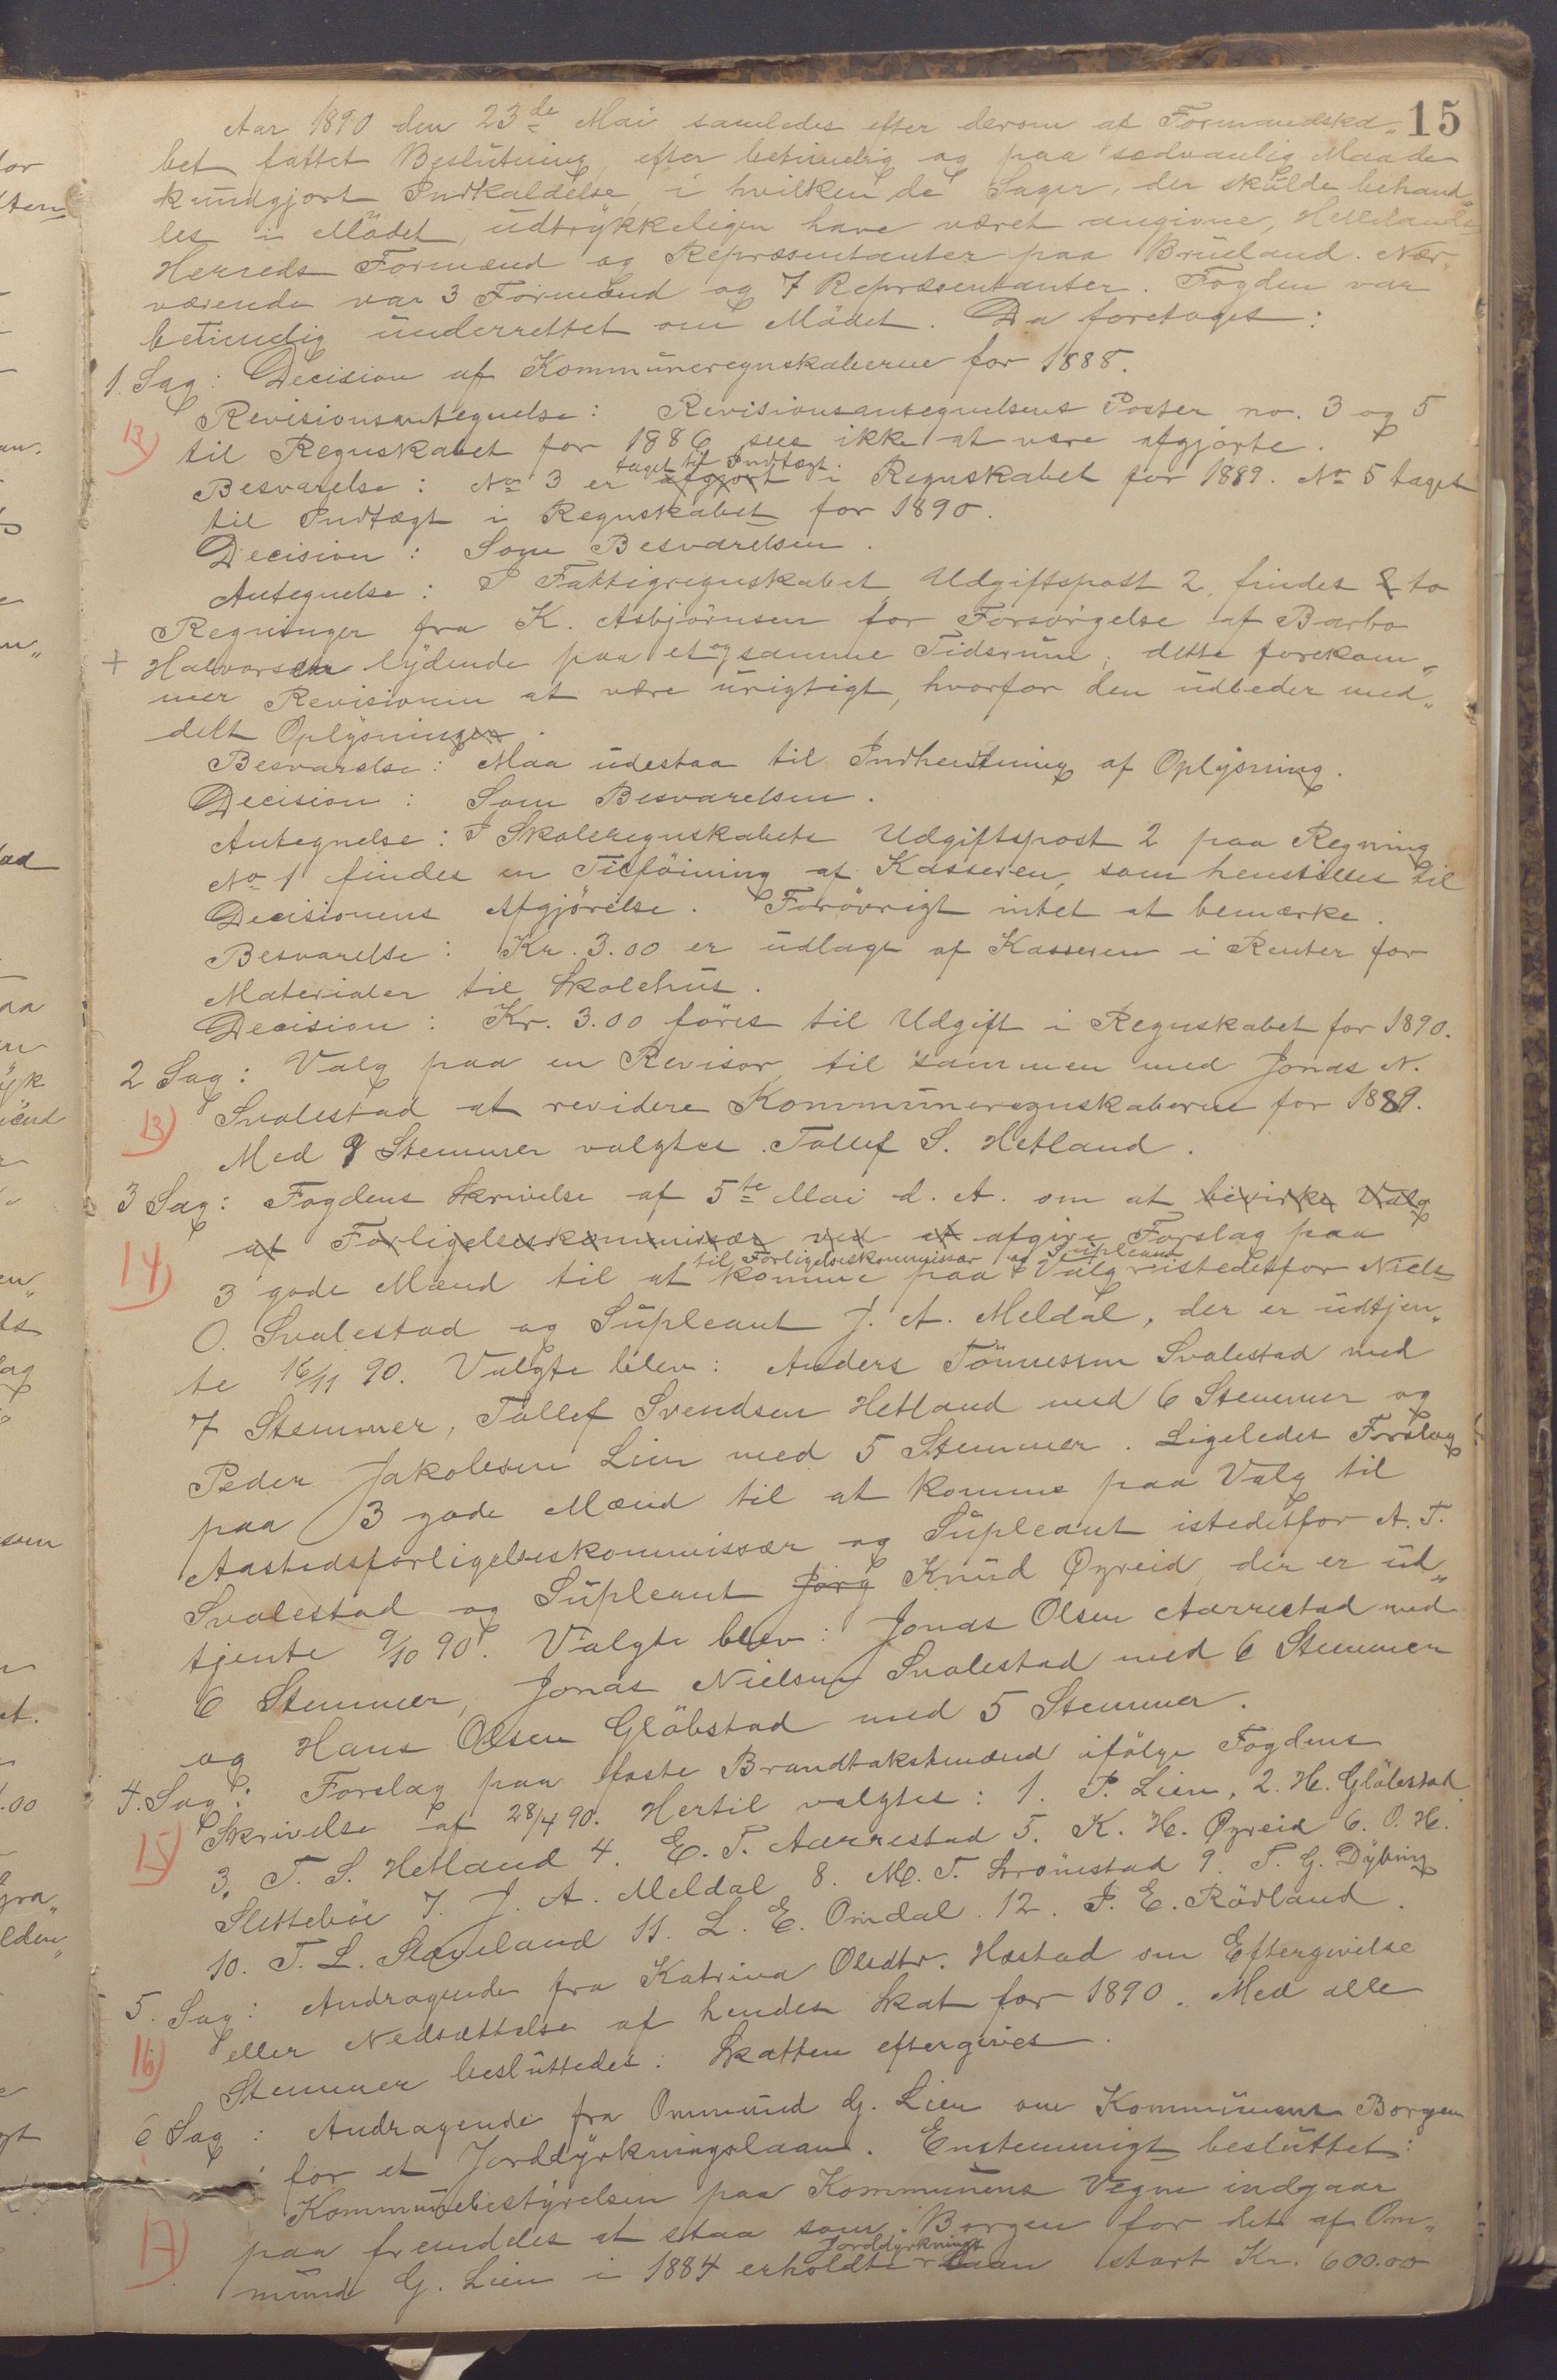 15
Aar 1890 den 23de Mai samledes efter derom af Formandska„
bet fattet Beslutning, efter betimelig og paa sædvanlig Maade
kundgjort Indkaldelse, i hvilken de Sager, der skulde behand„
les i Mödet, udtrykkeligen have været angivne, Hellelands
Herreds Formænd og Repræsentanter paa Brueland. Nær„
værende var 3 Formænd og 7 Repræsentanter. Fogden var
betimelig underrettet om Mödet. Da foretoges:
1. Sag: Decision af Kommuneregnskaberne for 1888.
Revisionsantegnelse: Revisionsantegnelsens Poster no. 3 og 5
12)
til Regnskabet for 1886 sees ikke at være afgjorte.
taget til Indtægt
Besvarelse: No 3 er afgjort i Regnskabet for 1889. No 5 taget
til Indtægt i Regnskabet for 1890.
Decision: Som Besvarelsen.
Antegnelse: I Fattigregnskabet Udgiftspost 2, findes 2 to
Regninger fra K. Asbjörnsen for Forsörgelse af Barbo
+ Halvorsen lydende paa et og samme Tidsrum; dette forekom„
mer Revisionen at være urigtigt, hvorfor den udbeder med„
delt Oplysningen.
Besvarelse: Maa udestaa til Indhentning af Oplysning.
Decision: Som Besvarelsen.
Antegnelse: I Skoleregnskabets Udgiftspost 2 paa Regning
No 1 findes en Tilföining af Kasseren, som henstilles til
Decisionens Afgjörelse. Forövrigt intet at bemærke.
Besvarelse: Kr. 3.00 er udlagt af Kasseren i Renter for
Materialer til Skolehus.
Decision: Kr. 3.00 föres til Udgift i Regnskabet for 1890.
2 Sag: Valg paa en Revisor til sammen med Jonas N.
13)
Svalestad at revidere Kommuneregnskaberne for 1889.
Med 9 Stemmer valgtes Tollef S. Hetland.
3 Sag: Fogdens Skrivelse af 5te Mai d. A. om at bevirke Valg
14)
af Forligelseskommissær ved at afgive Forslag paa
til Forligelseskommissær og Supleant
3 gode Mænd til at komme paa Valg istedetfor Niels
O. Svalestad og Supleant J. A. Meldal, der er udtjen„
te 16/11 90. Valgte blev: Anders Tönnessen Svalestad med
7 Stemmer, Tollef Svendsen Hetland med 6 Stemmer og
Peder Jakobsen Lien med 5 Stemmer. Ligeledes Forslag
paa 3 gode Mænd til at komme paa Valg til
Aastedsforligelseskommissær og Supleant istedetfor A. T.
Svalestad og Supleant Jörg Knud Øgreid, der er ud„
tjente 9/10 90. Valgte blev: Jonas Olsen Aarrestad med
6 Stemmer, Jonas Nielsen Svalestad med 6 Stemmer
og Hans Olsen Glöbstad med 5 Stemmer.
4. Sag: Forslag paa faste Brandtakstmænd ifölge Fogdens
15)
Skrivelse af 28/4 90. Hertil valgtes: 1. P. Lien, 2. H. Glöbestad
3. T. S. Hetland 4. E. T. Aarrestad 5. K. H. Øgreid 6. O. H.
Slettebö 7. J. A. Meldal 8. M. T. Strömstad 9. T. G. Dybing
10. T. L. Skaveland 11. L. E. Omdal 12. P. E. Rödland.
5. Sag: Andragende fra Katrina Olsdtr. Hæstad om Eftergivelse
16)
eller Nedsættelse af hendes Skat for 1890. Med alle
Stemmer besluttedes: Skatten eftergives.
6 Sag: Andragende fra Ommund G. Lien om Kommunens Borgen
for et Jorddyrkningslaan. Enstemmigt besluttet:
Kommunebestyrelsen paa Kommunens Vegne indgaar
17)
paa fremdeles at staa som Borgen for det af Om„
Jorddyrknings
mund G. Lien i 1884 erholdte laan stort Kr. 600.00